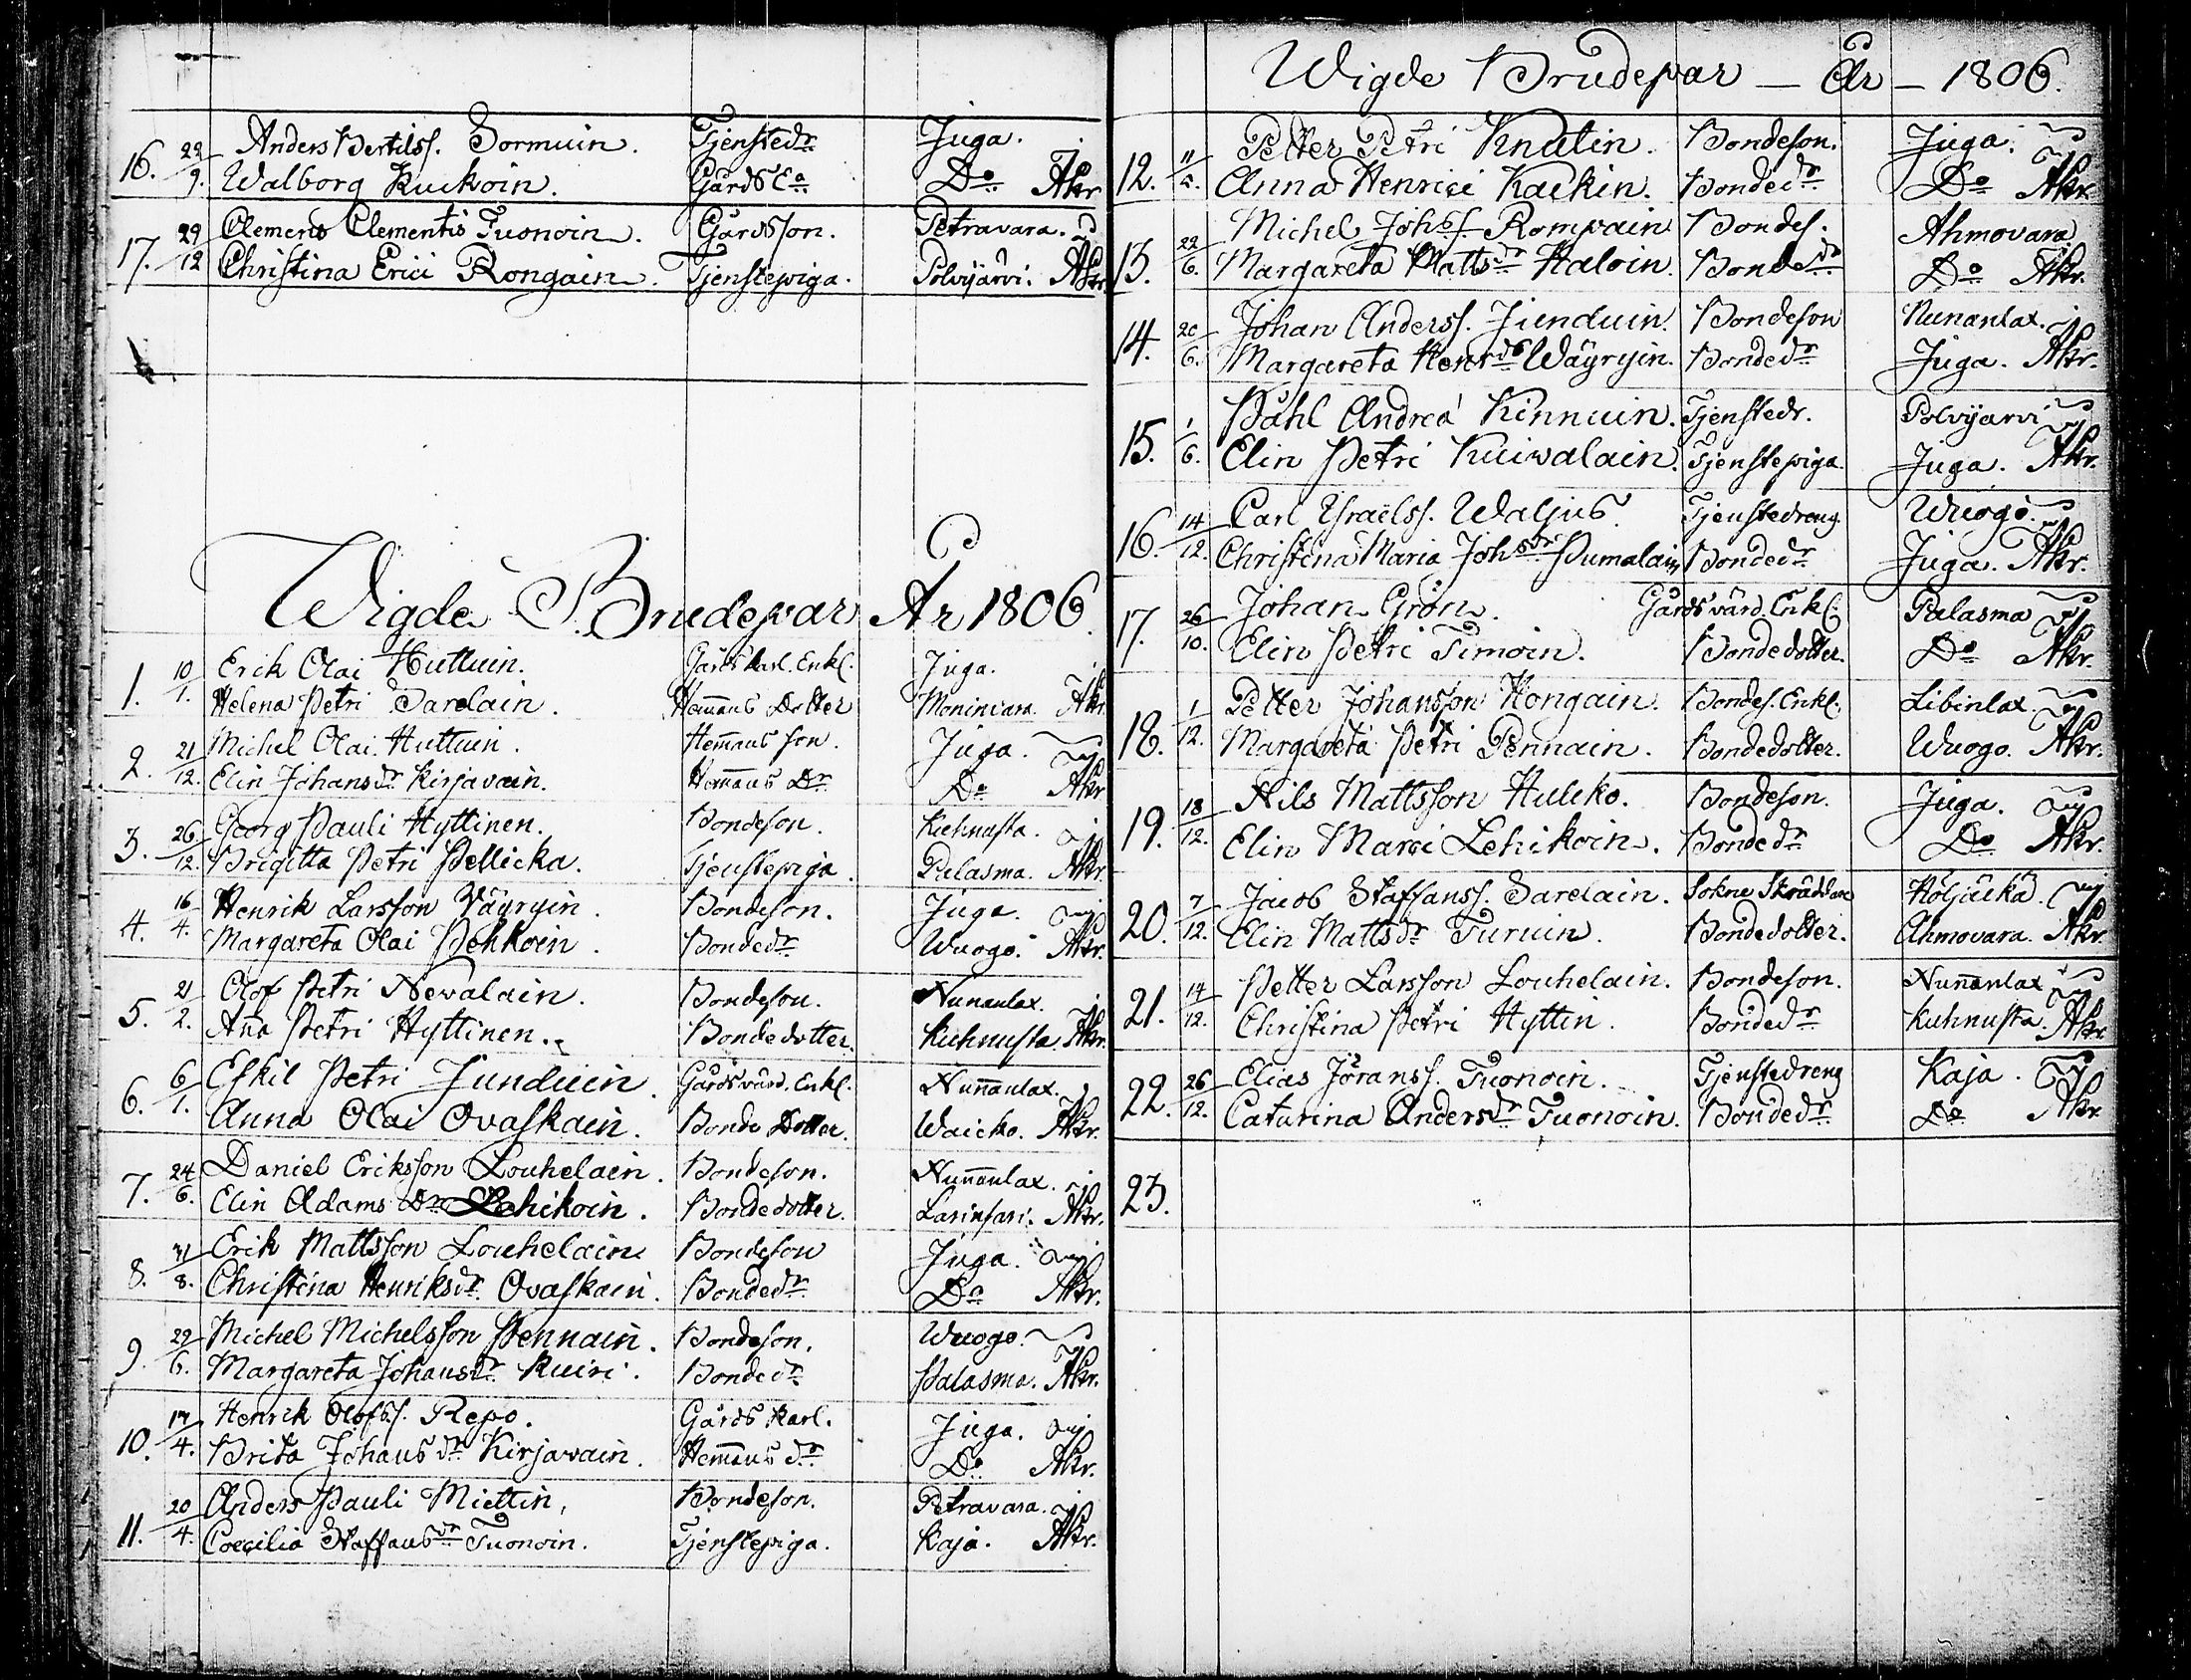 16. 22/9. Anders Bertilsſ. Sormuin. Tjenstedr Juga.
Walborg Kuckoin. Gårds Ea Do Akr
17. 29/12 Clemens Clementis Tuonoin. Gårdsson. Petravara.
Christina Erici Rongain. Tjenstepiga. Polvijärvi. Akr.
Wigde Brudepar År 1806.
1. 10/1. Erik Olai Huttuin. Gårds karl. Enkl. Juga.
Helena Petri Sarelain. Hem̄ans Dotter Moninvara. Akr.
2. 21/12. Michel Olai Huttuin. Hem̄ans son. Juga.
Elin Johansdr Kirjavain. Hem̄ans Dr Do Akr
3. 26/12. Georg Pauli Hyttinen. Bondeson. Kuhnusta.
Brigitta Petri Pellicka. Tjenstepiga. Palasma. Akr.
4. 16/4. Henrik Larsson Väyryin. Bondeson. Juga.
Margareta Olai Pehkoin. Bondedr Wuogo. Akr.
5. 21/2. Olof Petri Nevalain. Bondeson. Nunanlax.
An̄a Petri Hyttinen. Bondedotter. Kuhnusta. Akr.
6. 6/1. Eskil Petri Junduin. Gårdsvärd. Enkl. Nun̄anlax.
Anna Olai Ovaskain. Bonde Dotter. Waicko. Akr.
7. 24/6. Daniel Eriksson Louhelain. Bondeson. Nun̄anlax.
Elin Adams Dr Lehikoin. Bondedotter. Larinsari. Akr.
8. 31/8. Erik Mattsson Louhelain Bondeson Juga.
Christina Henriksdr. Ovaskain. Bondedr Do Akr.
9. 29/6. Michel Michelsson Pennain. Bondeson. Wuogo.
Margareta Johansdr Kuiri. Bondedr Palasma. Akr.
10. 17/4. Henrik Olofsſ. Repo. Gårds karl. Juga.
Brita Johansdr Kirjavain. Hem̄ans dr Do Akr.
11. 20/4. Anders Pauli Miettin, Bondeson. Petravara.
Coecilia Staffansdr Tuonoin. Tjenstepiga. Kaja. Akr.
Wigde Brudepar — År — 1806.
12. 11/5. Petter Petri Knutin. Bondeson. Juga.
Anna Henrici Kackin. Bondedr Do Akr.
13. 22/6. Michel Johsſ. Rompain Bondes. Ahmovara
Margareta Mattsdr Haloin. Bondedr Do Akr.
14. 20/6. Johan Andersſ. Junduin. Bondeson Nunanlax.
Margareta Henrdr Wäyryin. Bondedr Juga. Akr.
15. 1/6. Påhl Andreä Kinnuin. Tjenstedr. Polvijarvi
Elin Petri Kuivalain. Tjenstepiga. Juga. Akr.
16. 14/12. Carl Israelsſ. Waljus. Tjenstedreng Wuogo.
Christina Maria Johsdr Pumalain Bondedr Juga. Akr.
17. 26/10. Johan Grön. Gårdsvärd. Enkl. Palasma
Elin Petri Timoin. Bondedotter. Do Akr.
18. 1/12. Petter Johansson Hongain. Bondes. Enkl. Libinlax.
Margareta Petri Pennain. Bondedotter. Wuogo. Akr.
19. 18/12. Nils Mattsson Huleko. Bondeson. Juga.
Elin Marci Lehikoin. Bondedr Do Akr.
20. 7/12. Jacob Staffansſ. Sarelain. Sokne Skräddare Höljäckä.
Elin Mattsdr Turuin. Bondedotter. Ahmovara. Akr.
21. 14/12. Petter Larsson Louhelain. Bondeson. Nun̄anlax
Christina Petri Hyttin. Bondedr Kuhnusta. Akr
22. 26/12. Elias Jöransſ. Tuonoin. Tjenstedreng Kaja.
Catarina Andersdr Tuonoin. Bondedr Do Akr
23.